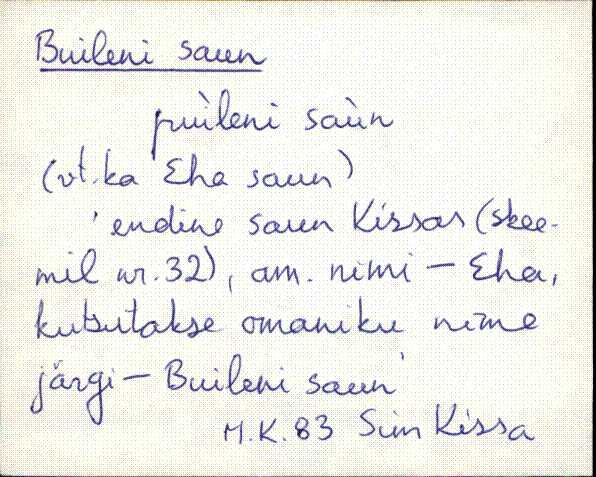 Buileni saun
puìleni saùn
(vt. ka Eha saun)
'endine saun Kissas (skee-
mil nr. 32), am. nimi – Eha,
kutsutakse omaniku nime
järgi – Buileni saun'
M.K. 83 Sim Kissa